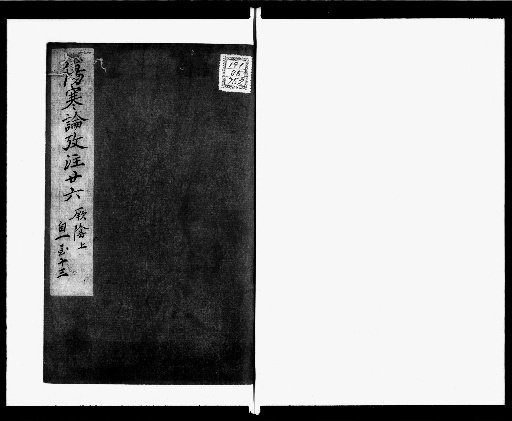 傷寒論攷注廿六
厥陰上
自一至十三
191
08
752